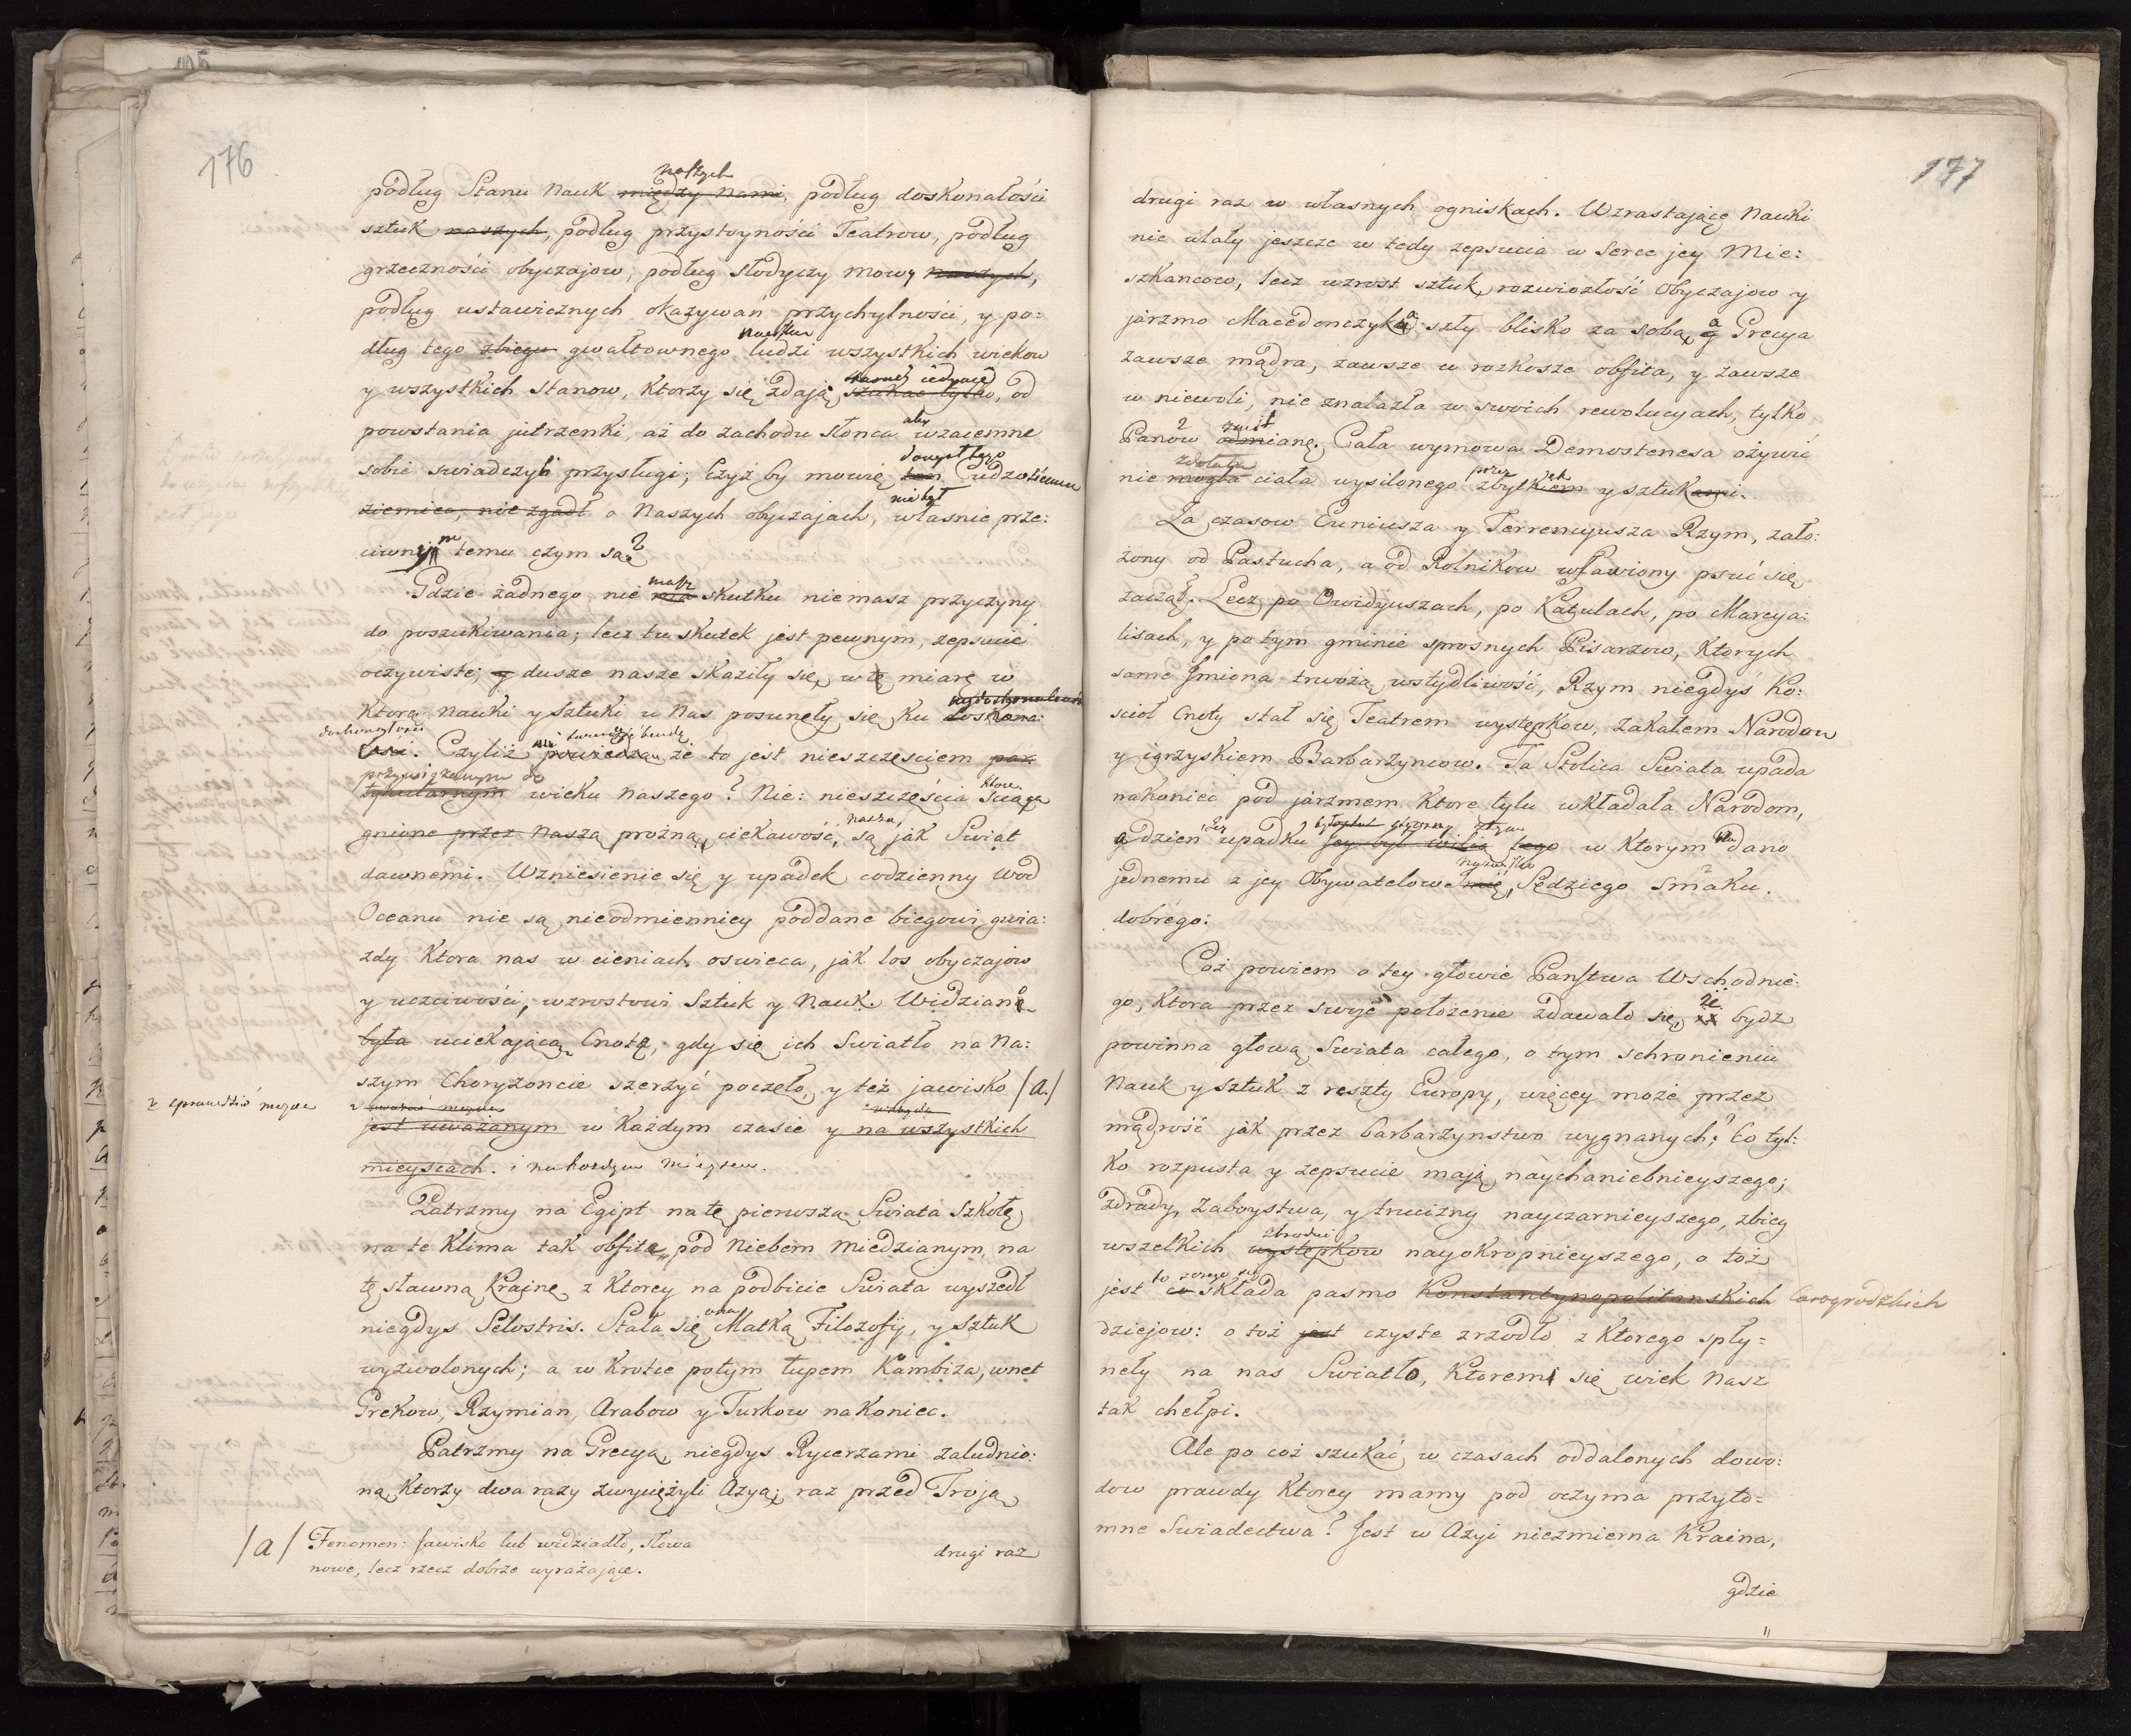 176
naszych
podług Stanu Nauk między nami, podług doskonałości
sztuk naszych, podług przystoyności Teatrow, podług
grzeczności obyczajow, podług słodyczy mowy naszych,
podług ustawicznych okazywań przychylności, y po=
dług tego zbiegu gwałtownego ludzi wszystkich wiekow
y wszystkich Stanow, Ktorzy się zdają szukać tylko, od
powstania jutrzenki, aż do zachodu słonca aby wzaiemne
sobie swiadczyli przysługi; Czyż by mowię ten Cudzoziemcu
ziemiec, nie zgadł o Naszych obyczajach, własnie prze:
ciwney temu czym są?
Gdzie żadnego nie ma skutku niemasz przyczyny
do poszukiwania; lecz tu skutek jest pewnym, zepsucie
oczywiste; y dusze nasze skaziły się, w tę miarę w
Ktorą Nauki y Sztuki u Nas posunęły się ku doskona:
doskonałości
łości. Czyliż powiedzą że to jest nieszczęsciem par
przywiązanym do
tykularnym wieku Naszego? Nie: nieszczęścia Sciąga
gnione przez Naszą prożną ciekawość, są jak Swiat
dawnemi. Wzniesienie się y upadek codzienny Wod
Oceanu nie są nieodmienniey poddane biegowi gwia:
zdy Ktora nas w cieniach oswieca, jak los obyczajow
y uczciwości, wzrostowi Sztuk y Nauk. Widziano
była uciekającą Cnotę, gdy się ich Swiatło na Na:
szym Choryzoncie szerzyć poczęło, y też jawisko /a./
uważać można
jest uważanym w Każdym czasie y na wszystkich
mieyscach. i na każdym mieyscu.
Patrzmy na Egipt na tę pierwszą Swiata Szkołę
na te Klima tak obfite, pod Niebem miedzianym, na
tę sławną Krainę z Ktorey na podbicie Swiata wyszedł
niegdys Sesostris. Stała się ona Matką Filozofij, y Sztuk
wyzwolonych; a w Krotce potym łupem Kambiza, wnet
Grekow, Rzymian, Arabow y Turkow nakoniec.
Patrzmy na Grecyą niegdys Rycerzami zaludnio:
ną, Ktorzy dwa razy zwyciężyli Azyą; raz przed Troją
/a/ Fenomen: Jawisko lub widziadło, słowa
nowe, lecz rzecz dobrze wyrażające.
drugi raz
177
drugi raz w własnych ogniskach. Wzrastające Nauki
nie wlały jeszcze w tedy zepsucia w Serce jey Mie:
szkancow, lecz wzrost sztuk, rozwiozłość Obyczajow y
járzmo Macedonczyka szły blisko za sobą, a Grecya
zawsze mądra, zawsze w rozkosze obfita, y zawsze
w niewoli, nie znalazła w swoich rewolucyach, tylko
Panow odmianę. Cała wymowa Demostenesa ożywić
zdołała
nie mogła ciała wysilonego przez zbytkiem y sztukami.
Za czasow Enniusza y Terrencyusza Rzym, zało:
żony od Pastucha, a od Rolnikow wsławiony psuć się
zaczął. Lecz po Owidyuszach, po Katulach, po Marcya:
lisach, y po tym gminie sprosnych Pisarzow, Ktorych
same Jmiona trwożą wstydliwość, Rzym niegdyś Ko:
scioł Cnoty stał się Teatrem występkow, Zakałem Narodow
y igrzyskiem Barbarzyncow. Ta Stolica Swiata upada
nakoniec pod járzmem Ktore tylu wkładała Narodom,
a dzien upadku jey był wilią tego w Ktorym dano
jednemu z jey Obywatelow Imię, Sędziego Smaku
dobrego.
Coż powiem o tey głowie Panstwa Wschodnie:
go, Ktora przez swoje położenie zdawało się, że bydz
powinna głową Swiata całego, o tym schronieniu
Nauk y Sztuk z reszty Europy, więcey może przez
mądrość jak przez barbarzynstwo wygnanych? Co tyl:
ko rozpusta y zepsucie mają náychaniebnieyszego;
zdrady, zaboystwa, y trucizny nayczarnieyszego, zbieg
zbrodni
wszelkich występkow nayokropnieyszego, o toż
jest to z czego się składa pasmo Konstantynopolitanskich Carogrodzkich
dziejow: o toż jest czyste zrzodło z Ktorego spły=
nęły na nas Swiatło, Ktoremi się wiek Nasz
tak chełpi.
Ale po coż szukać w czasach oddalonych dowo:
dow prawdy Ktorey mamy pod oczyma przyto=
mne Swiadectwa? Jest w Azyi niezmierna Kraina,
gdzie